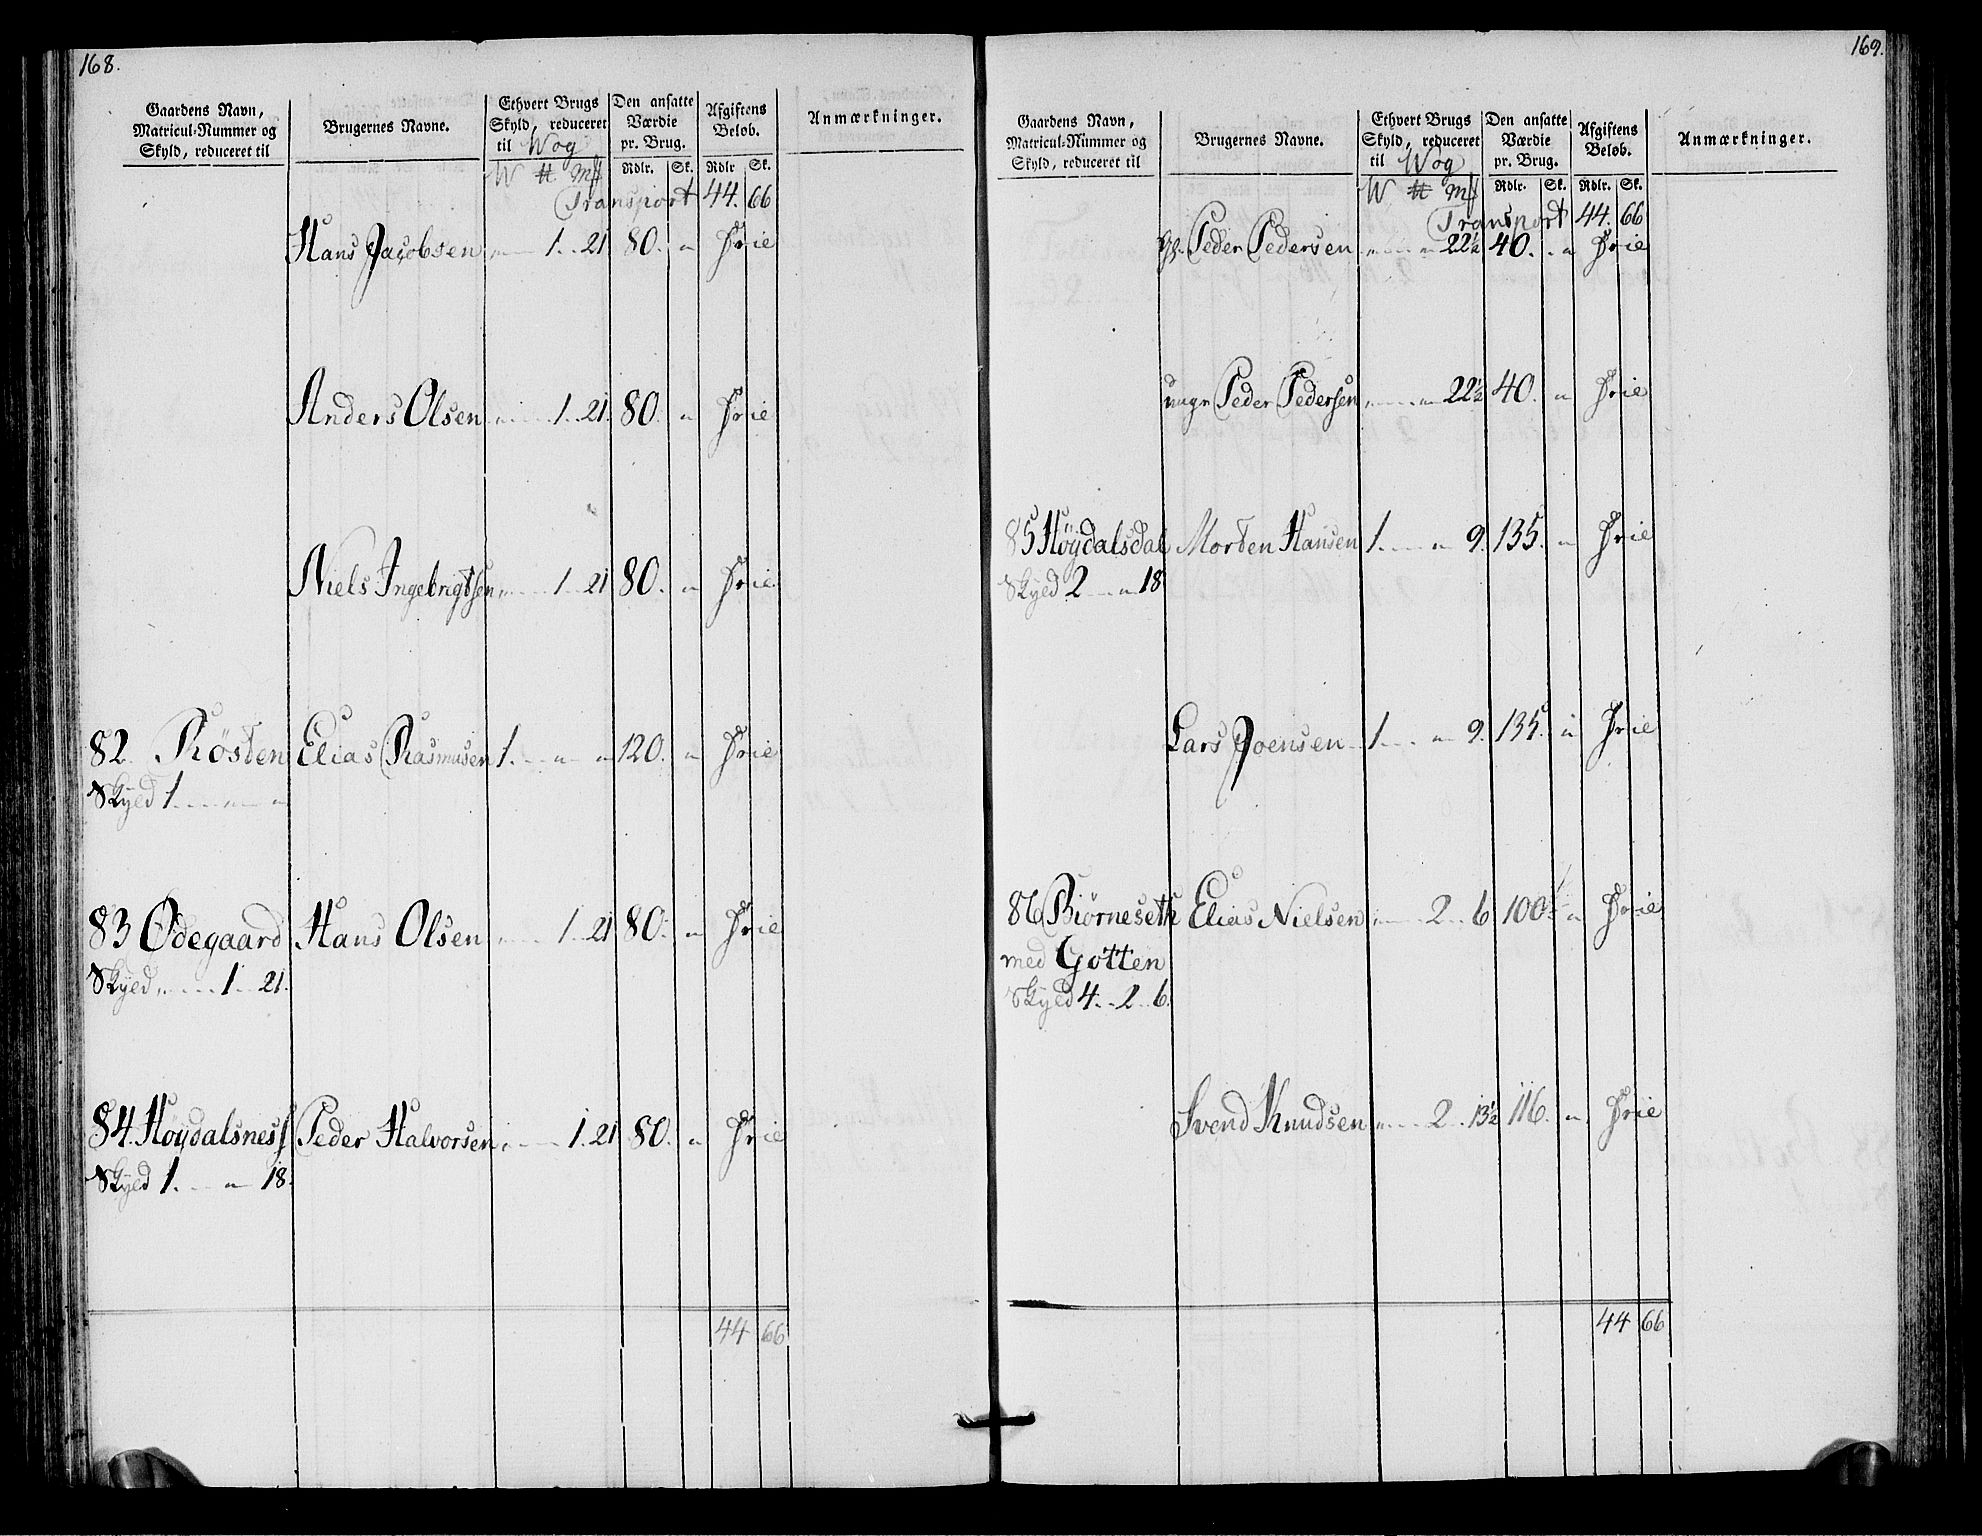 168.
Gaardens Navn, Matricul-Nummer og Skyld, reduceret til
Brugernes Navne.
Ethvert Brugs Skyld, reduceret til Wog
Den ansatte Værdie pr. Brug.
Afgiftens Beløb.
Anmærkninger.
W # Mk Rdlr. Sk. Rdlr Sk.
Transport 44. 66
Hans Jacobsen „ 1. 21 80. „ Frie
Anders Olsen „ 1. 21. 80. „ Frie
Niels Ingebrigtsen „ 1. 21 80. „ Frie
82. Rösten Elias Rasmusen 1. „ „ 120. „ Frie
Skyld 1. „ „
83 Ödegaard Hans Olsen „ 1. 21 80. „ Frie
Skyld „ 1. 21.
84. Höydalsness Peder Halvorsen „ 1. 21 80. „ Frie
Skyld 1. „ 18.
44 66
169.
Gaardens Navn, Matricul-Nummer og Skyld, reduceret til
Brugernes Navne.
Ethvert Brugs Skyld, reduceret til Wog
Den ansatte Værdie pr. Brug.
Afgiftens Beløb.
Anmærkninger.
W # Mk Rdlr. Sk. Rdlr. Sk.
Transport 44. 66
Peder Pedersen „ „ 22½ 40. „ Frie
ungr Peder Pedersen „ „ 22½ 40. „ Frie
85 Höydalsdal Morten Hansen 1. „ 9. 135. „ Frie
Skyld 2 „ 18
Lars Joensen 1. „ 9. 135. „ Frie
86 Biörneseth Elias Nielsen „ 2. 6 100. „ Frie
med Gotten
Skyld 4. 2. 6.
Svend Knudsen „ 2. 13½ 116. „ Frie
44 66